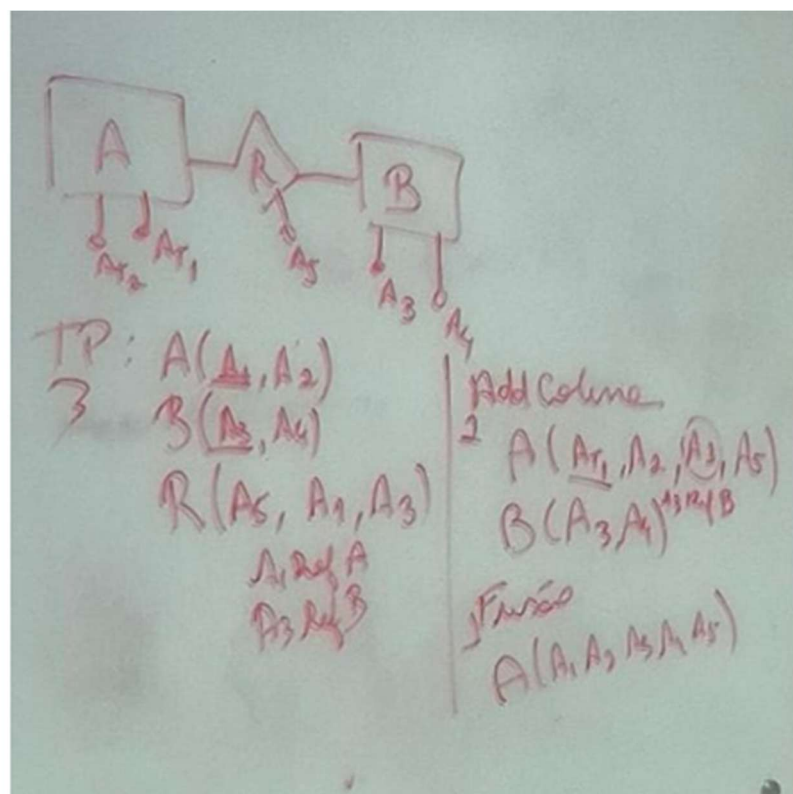 A
R
B
Ar2
Ar1
A5
A3
A4
TP: A(A1, A2)
3 B(A3, A4)
R(A5, A1, A3)
A1 Ref A
A3 Ref B
Add Coluna
2 A(Ar1, A2, A3, A5)
A3 Ref B
B(A3 A4)
1 Fusão
A(A1 A2 A3 A4 A5)